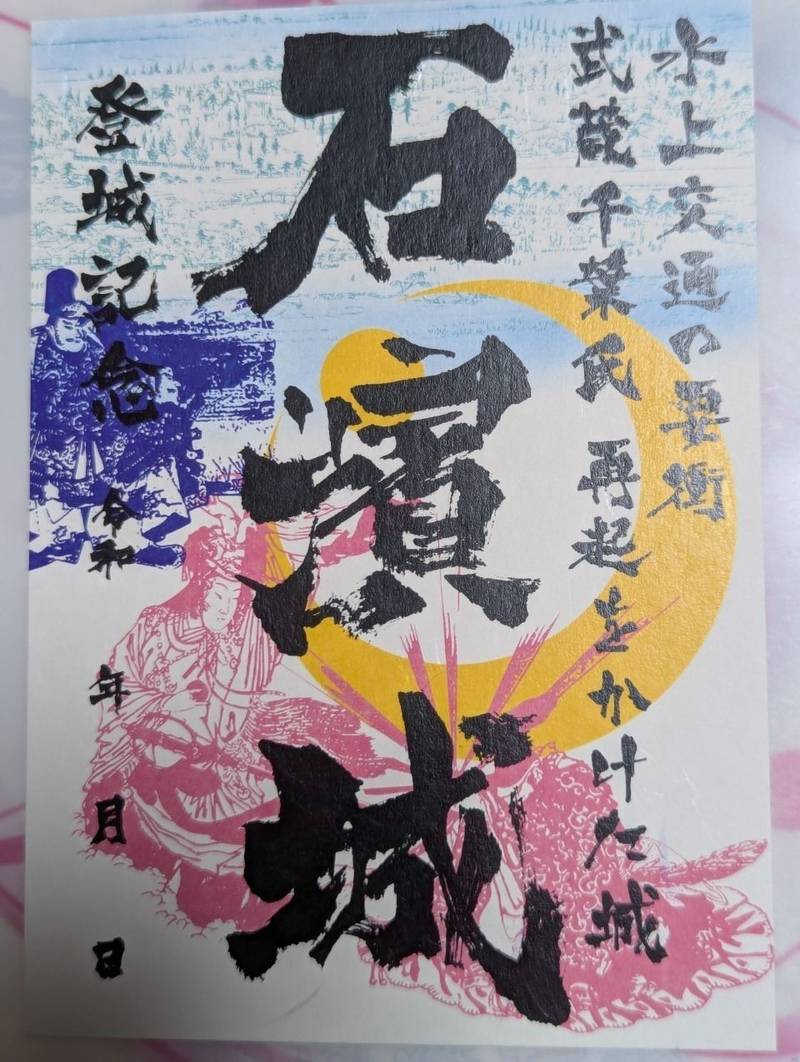 水上交通の要衝
武蔵千葉氏 再起をかけた城
石濱城
登城記念 令和 年 月 日